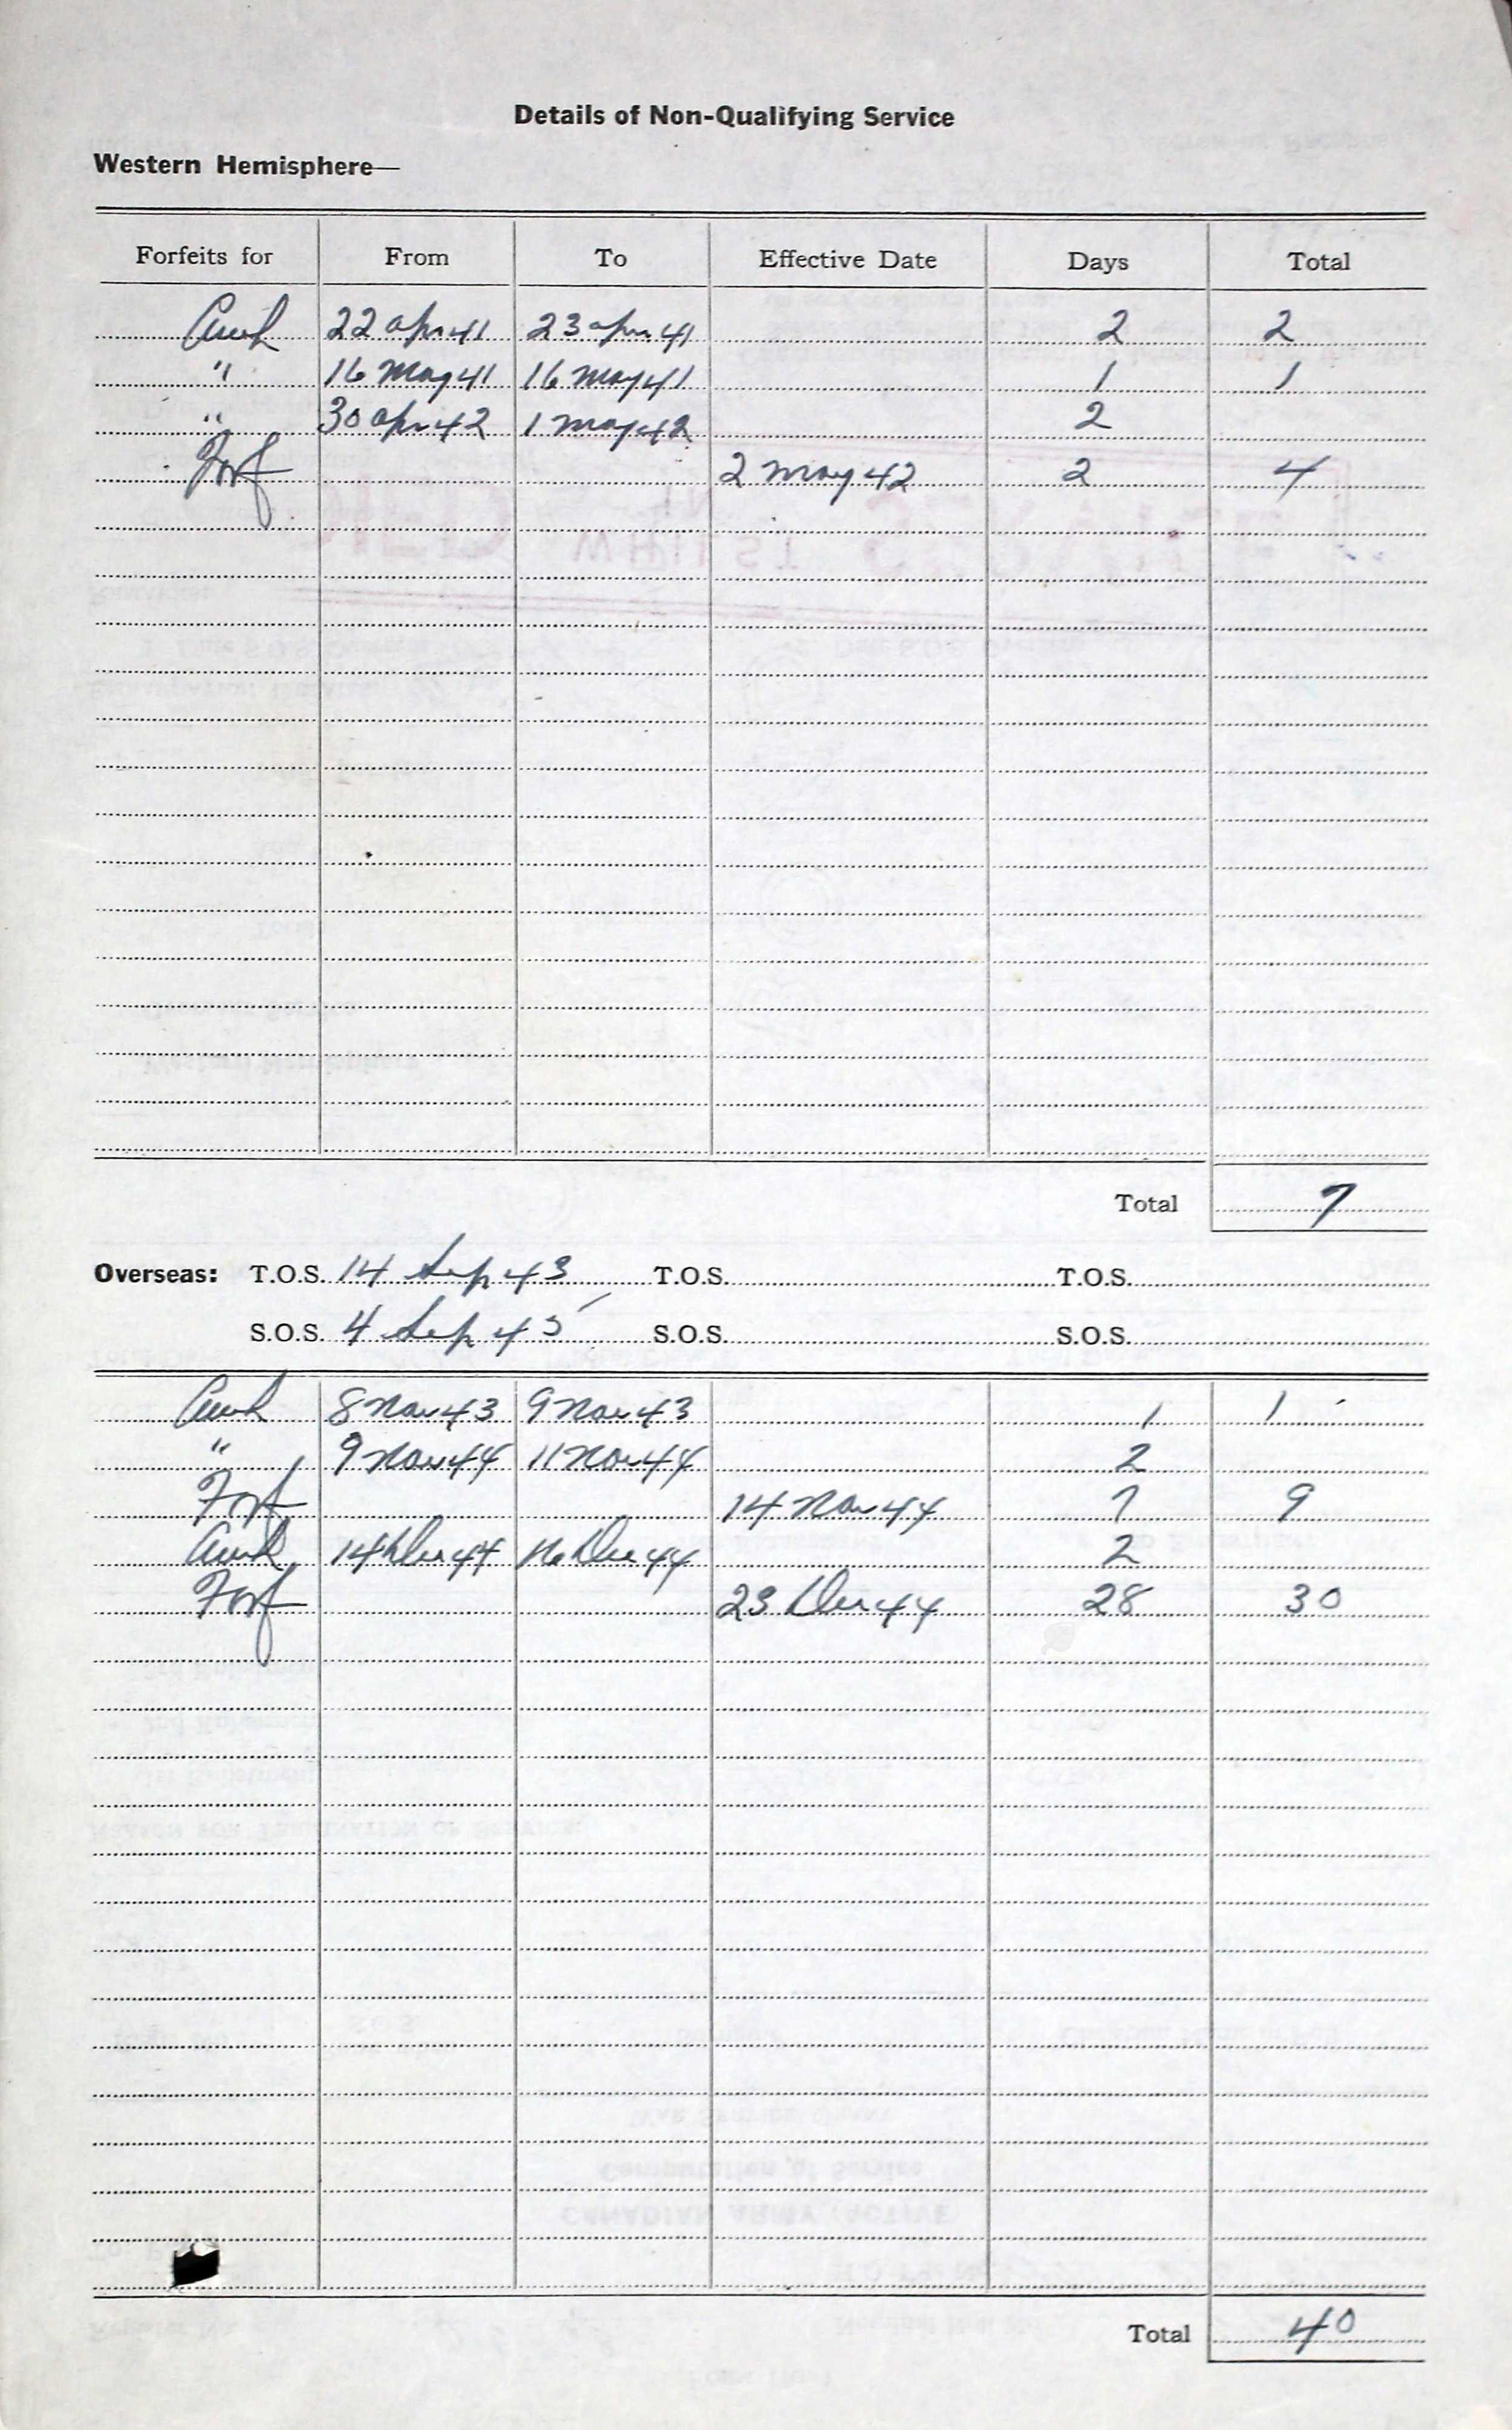 Details of Non-Qualifying Service
Western Hemisphere—
Forfeits for From To Effective Date Days Total
Awl 22 Apr 41 23 Apr 41 2 2
" 16 May 41 16 May 41 1 1
" 30 Apr 42 1 May 42 2
Forf 2 May 42 2 4
Total 7
Overseas: T.O.S. 14 Sep 43 T.O.S. T.O.S.
S.O.S. 4 Sep 45 S.O.S. S.O.S.
Awl 8 Nov 43 9 Nov 43 1 1
" 9 Nov 44 11 Nov 44 2
Forf 14 Nov 44 7 9
Awl 14 Dec 44 16 Dec 44 2
Forf 23 Dec 44 28 30
Total 40